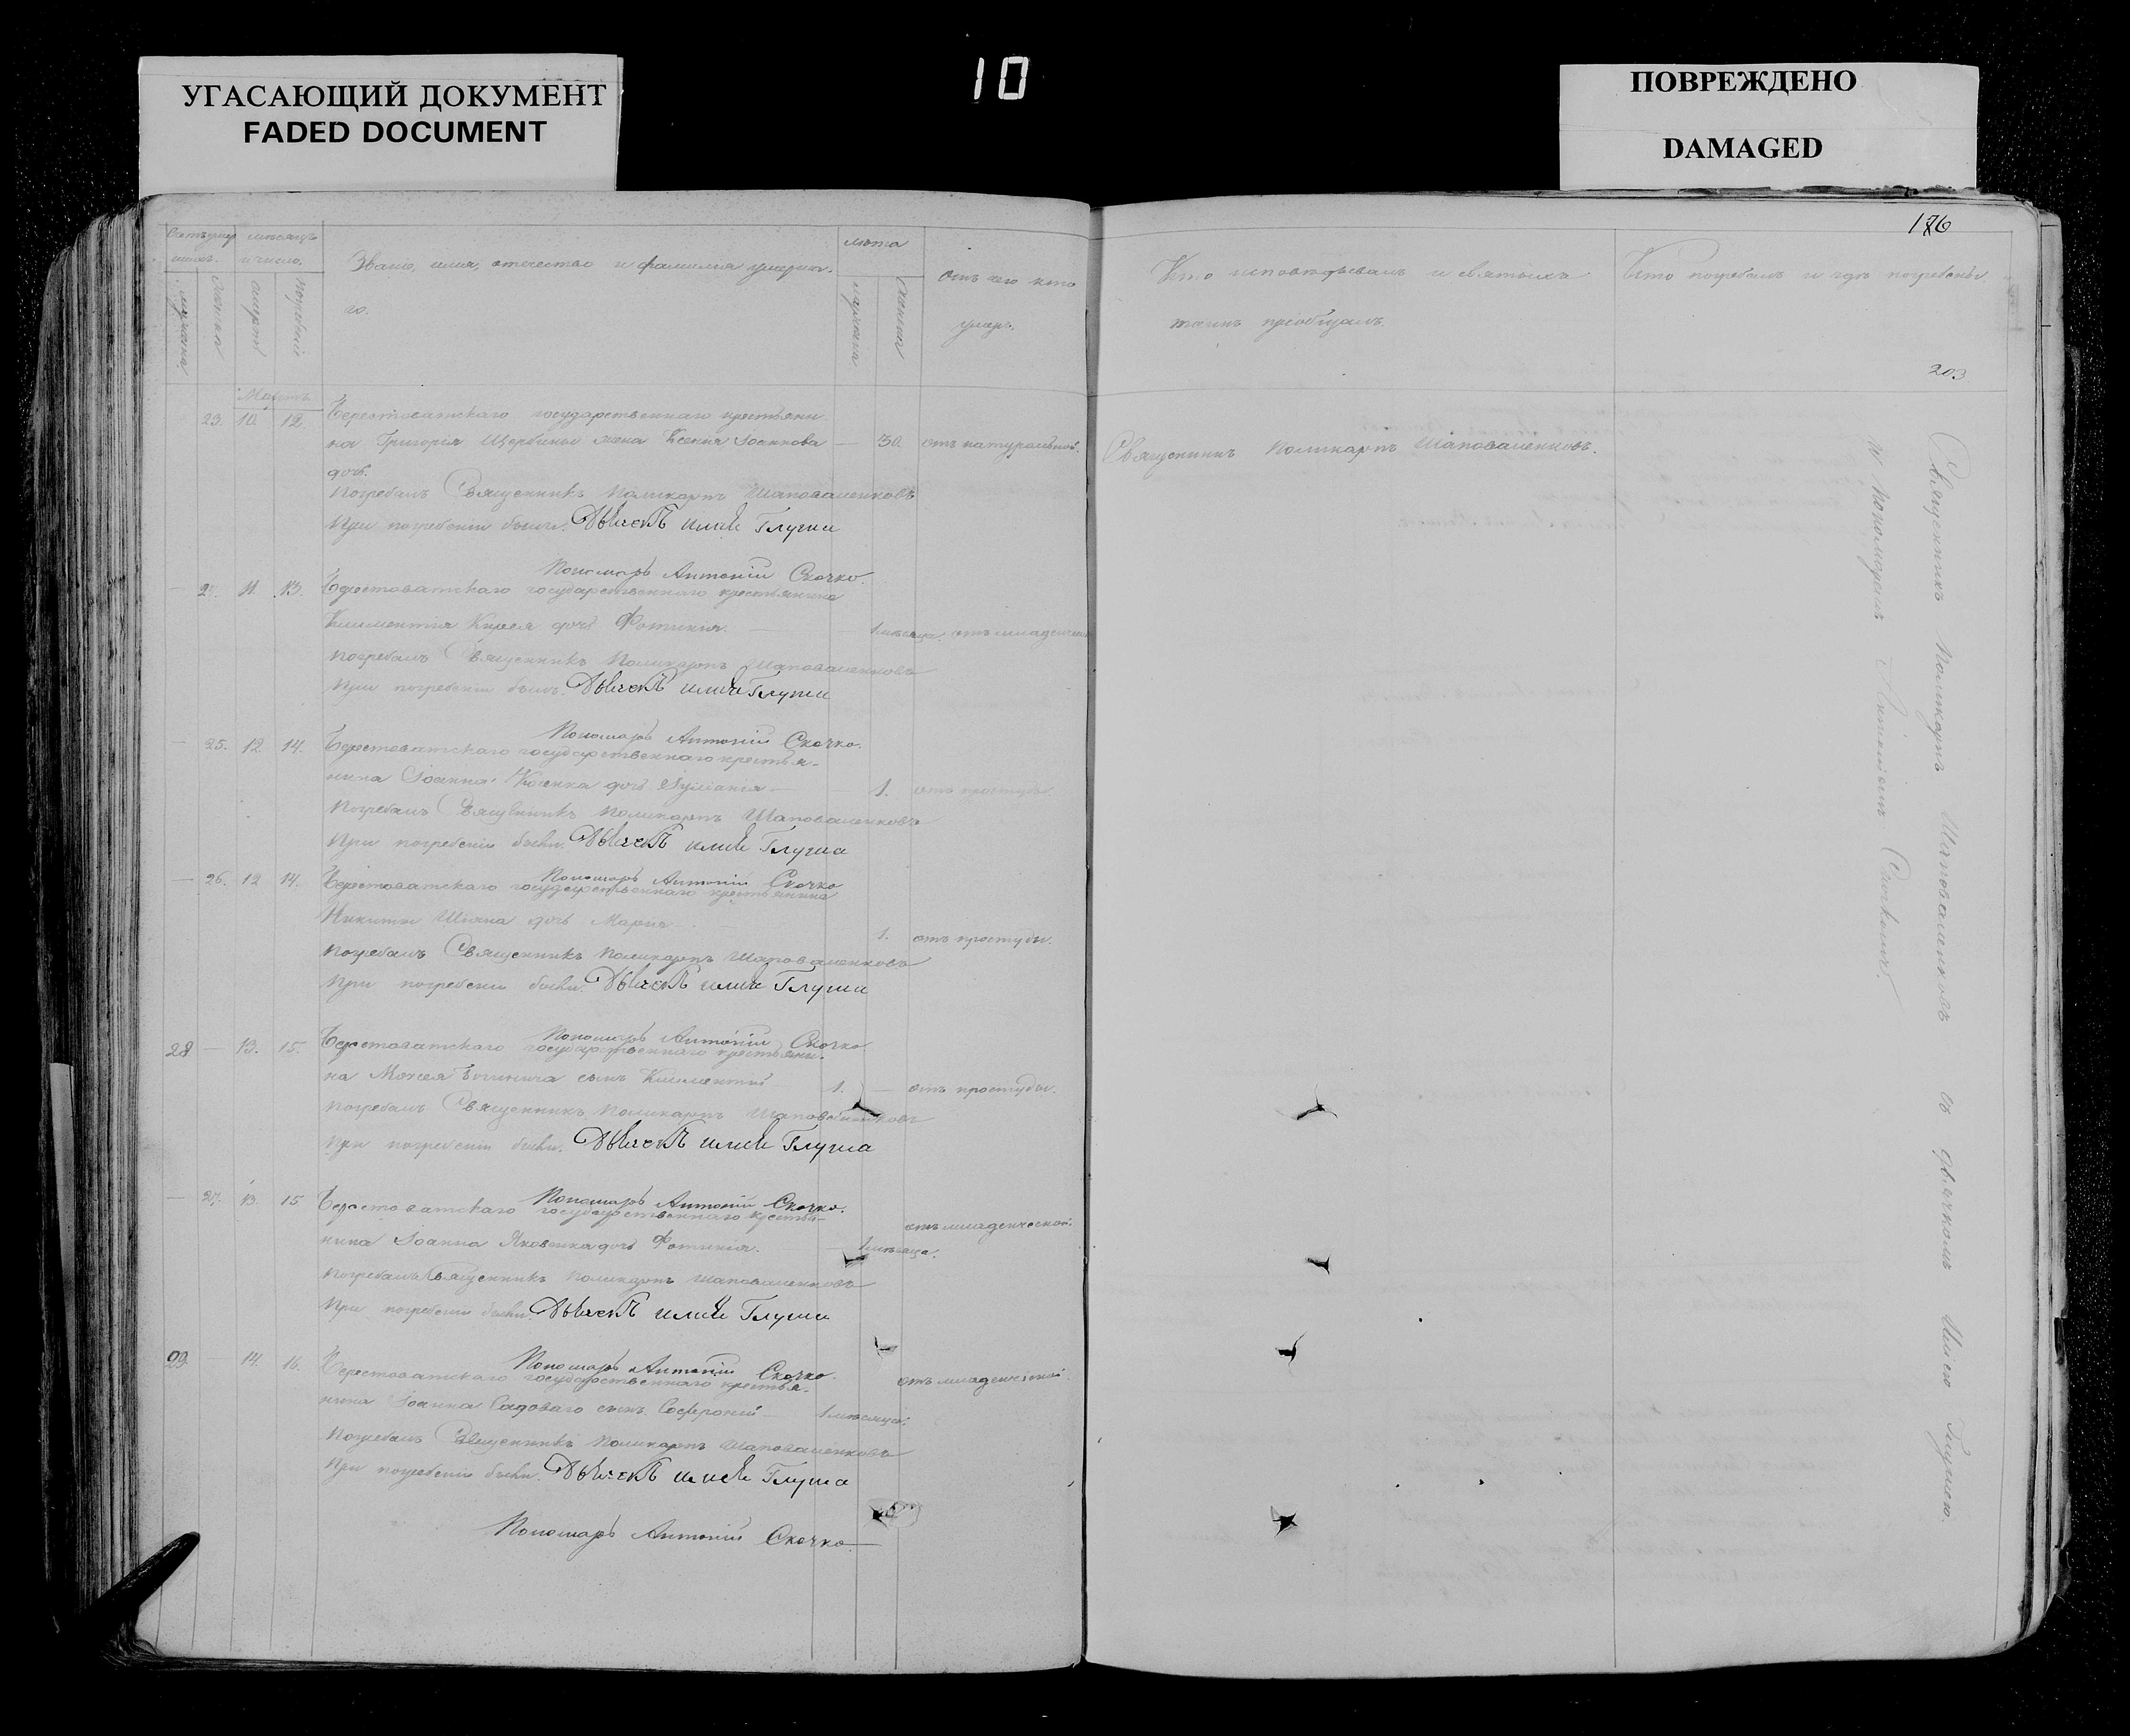 УГАСАЮЩИЙ ДОКУМЕНТ
FADED DOCUMENT
10
ПОВРЕЖДЕНО
DAMAGED
176
203
мѣсяцъ
и число.
Званіе, имя, отечество и фамилія умерша-
го.
лѣта
отъ чего кто
умеръ.
Кто исповѣдывалъ и святыхъ
таинъ пріобщалъ.
Кто погребалъ и гдѣ погребены.
Мартъ
23. 10. 12. Берестоватскаго государственнаго крестьяни
на Григорія Щербины жена Ксенія Іоаннова — 30. отъ натуральной.
дочь.
Священникъ Поликарпъ Шаповаленковъ.
Погребалъ Священникъ Поликарпъ Шаповаленковъ
При погребеніи были. Дьячекъ Илія Глуша
Пономарь Антоній Скочко.
— 24. 11. 13. Берестоватскаго государственнаго крестьянина
Климентія дочь Фотинія. — 1 мѣсяца. отъ младенческ
Погребалъ Священникъ Поликарпъ Шаповаленковъ
При погребеніи были. Дьячекъ Илія Глуша
Пономарь Антоній Скочко.
— 25. 12. 14. Берестоватскаго государственнаго крестья-
нина Іоанна дочь — 1. отъ простуды.
Погребалъ Священникъ Поликарпъ Шаповаленковъ
При погребеніи были. Дьячекъ Илія Глуша
Пономарь Антоній Скочко
— 26. 12 14. Берестоватскаго государственнаго крестьянина
Никиты Шіяна дочь Марія — 1. отъ простуды.
Погребалъ Священникъ Поликарпъ Шаповаленковъ
При погребеніи были. Дьячекъ Илія Глуша
Пономарь Антоній Скочко.
28 — 13. 15. Берестоватскаго государственнаго крестьяни-
на Моисея сынъ Климентій 1. — отъ простуды.
Погребалъ Священникъ Поликарпъ Шаповаленковъ
При погребеніи были. Дьячекъ Илія Глуша
Пономарь Антоній Скочко.
— 27. 13. 15 Берестоватскаго государственнаго крестья-
нина Іоанна Яковенка дочь Фотинія. — 1 мѣсяца. отъ младенческой.
Погребалъ Священникъ Поликарпъ Шаповаленковъ
При погребеніи были. Дьячекъ Илія Глуша
Пономарь Антоній Скочко.
29 — 14. 16. Берестоватскаго государственнаго крестья-
нина Іоанна Садоваго сынъ Софроній — 1 мѣсяца. отъ младенческой.
Погребалъ Священникъ Поликарпъ Шаповаленковъ
При погребеніи были. Дьячекъ Илія Глуша
Пономарь Антоній Скочко.
Священникъ Поликарпъ Шаповаленковъ съ дьячкомъ Иліею Глушею.
и пономаремъ Антоніемъ Скочкомъ.